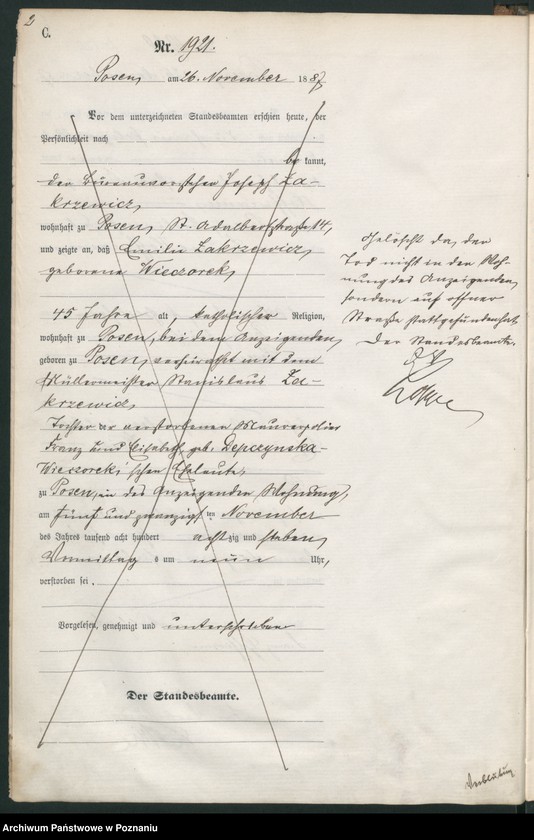 2
C.
Nr. 1921.
Posen, am 26. November 1887
Vor dem unterzeichneten Standesbeamten erschien heute, der
Persönlichkeit nach
be kannt,
der Bureauvorsteher Joseph Za-
krzewicz,
wohnhaft zu Posen, St. Adalbertstraße 14,
und zeigte an, daß Emilie Zakrzewicz,
geborene Wieczorek,
45 Jahre alt, katholischer Religion,
wohnhaft zu Posen, bei dem Anzeigenden,
geboren zu Posen, verheirathet mit dem
Müllermeister Stanislaus Za-
krzewicz,
Tochter der verstorbenen Maurerpolier
Franz und Elisabeth geb. Depczynska-
Wieczorek'schen Eheleute,
zu Posen, in des Anzeigenden Wohnung,
am fünf und zwanzigsten November
des Jahres tausend acht hundert achtzig und sieben,
Vormittags um neun Uhr,
verstorben sei.
Vorgelesen, genehmigt und unterschrieben
Der Standesbeamte.
Gelöscht da, der
Tod nicht in der Woh-
nung des Anzeigenden,
sondern auf offner
Straße stattgefunden hat
Der Standesbeamte.
Archiwum Państwowe w Poznaniu